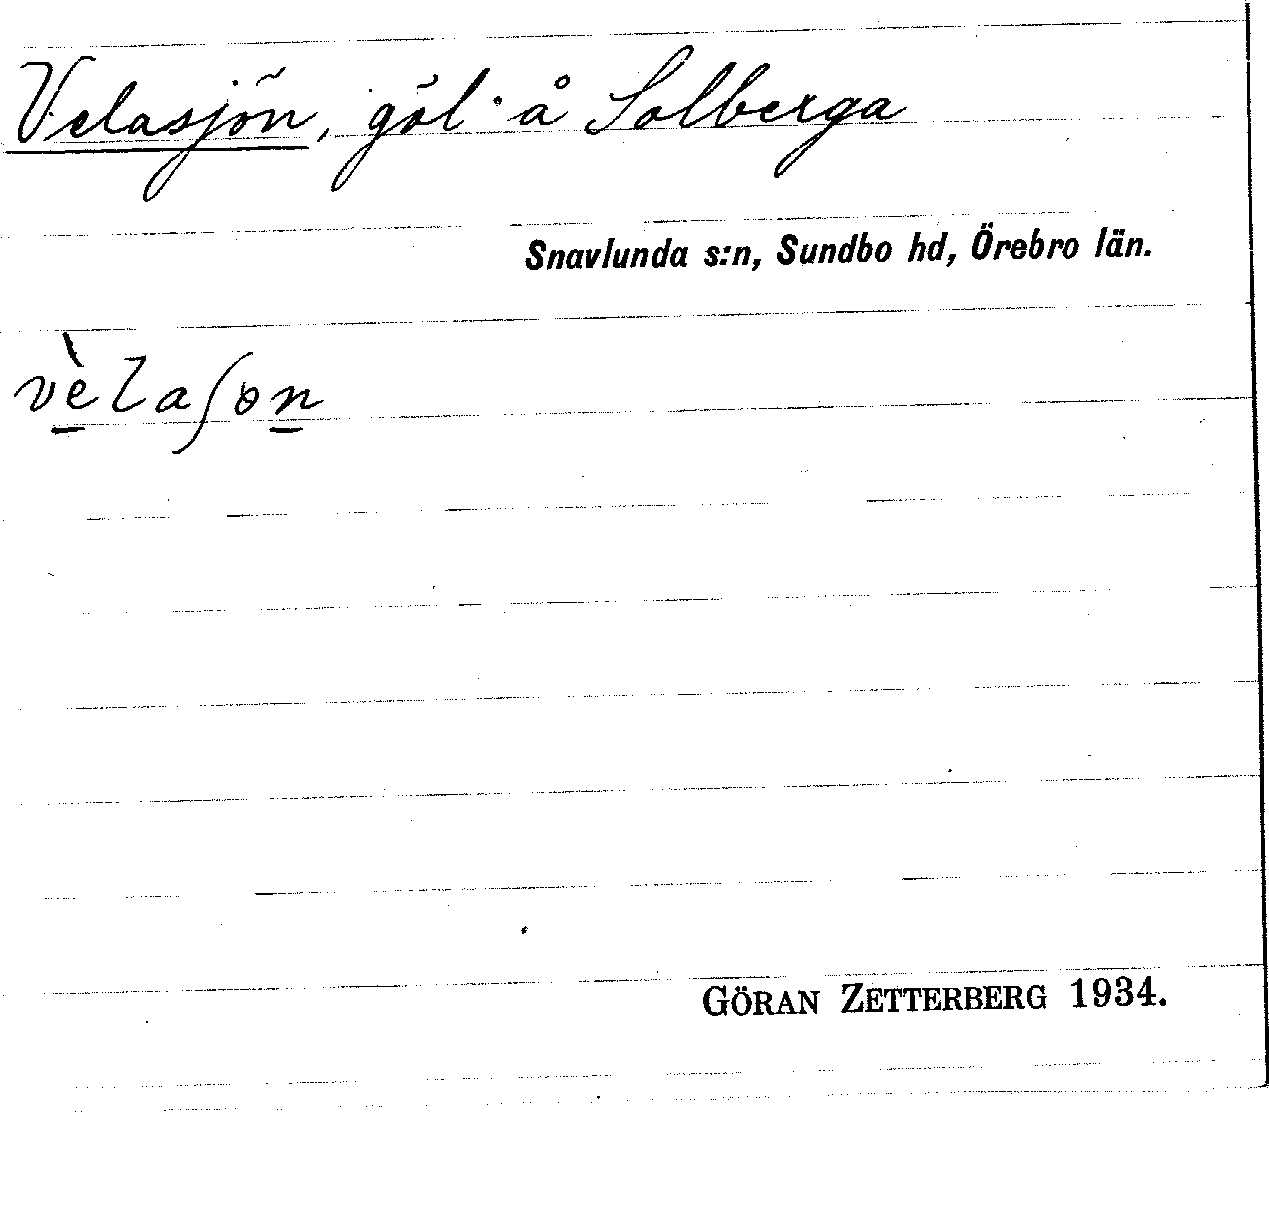 Velasjön, göl å Solberga
Snavlunda s:n, Sundbo hd, Örebro län.
vè̲laʃɵn̲
GÖRAN ZETTERBERG 1934.